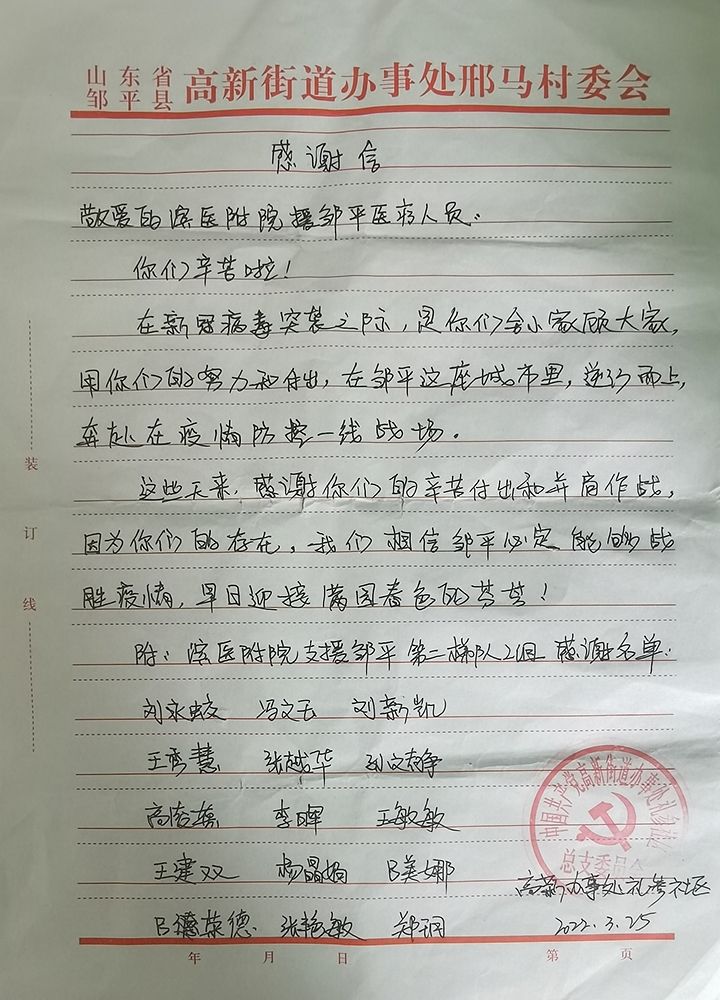 山东省
邹平县 高新街道办事处邢马村委会
感谢信
敬爱的滨医附院援邹平医疗人员：
你们辛苦啦！
在新冠病毒突袭之际，是你们舍小家顾大家，
用你们的努力和付出，在邹平这座城市里，逆行而上，
奔赴在疫情防控一线战场。
这些天来，感谢你们的辛苦付出和并肩作战，
因为你们的存在，我们相信邹平必定能够战
胜疫情，早日迎接满园春色的芬芳！
附：滨医附院支援邹平第二梯队2组 感谢名单：
刘永蛟 冯文玉 刘新凯
王秀慧 张越华 孙文静
高俊燕 李晖 王敏敏
王建双 杨晶娟 吕美娜
荣德 张艳敏 郑玥
中国共产党高新街道办事处礼参社区
总支委员会
高新办事处礼参社区
2022.3.25
年 月 日 第 页
装
订
线